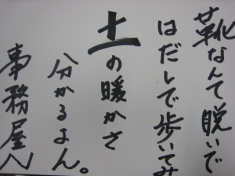 靴なんて脱いで
はだしで歩いてみ
土の暖かさ
分かるよん。
事務屋へ